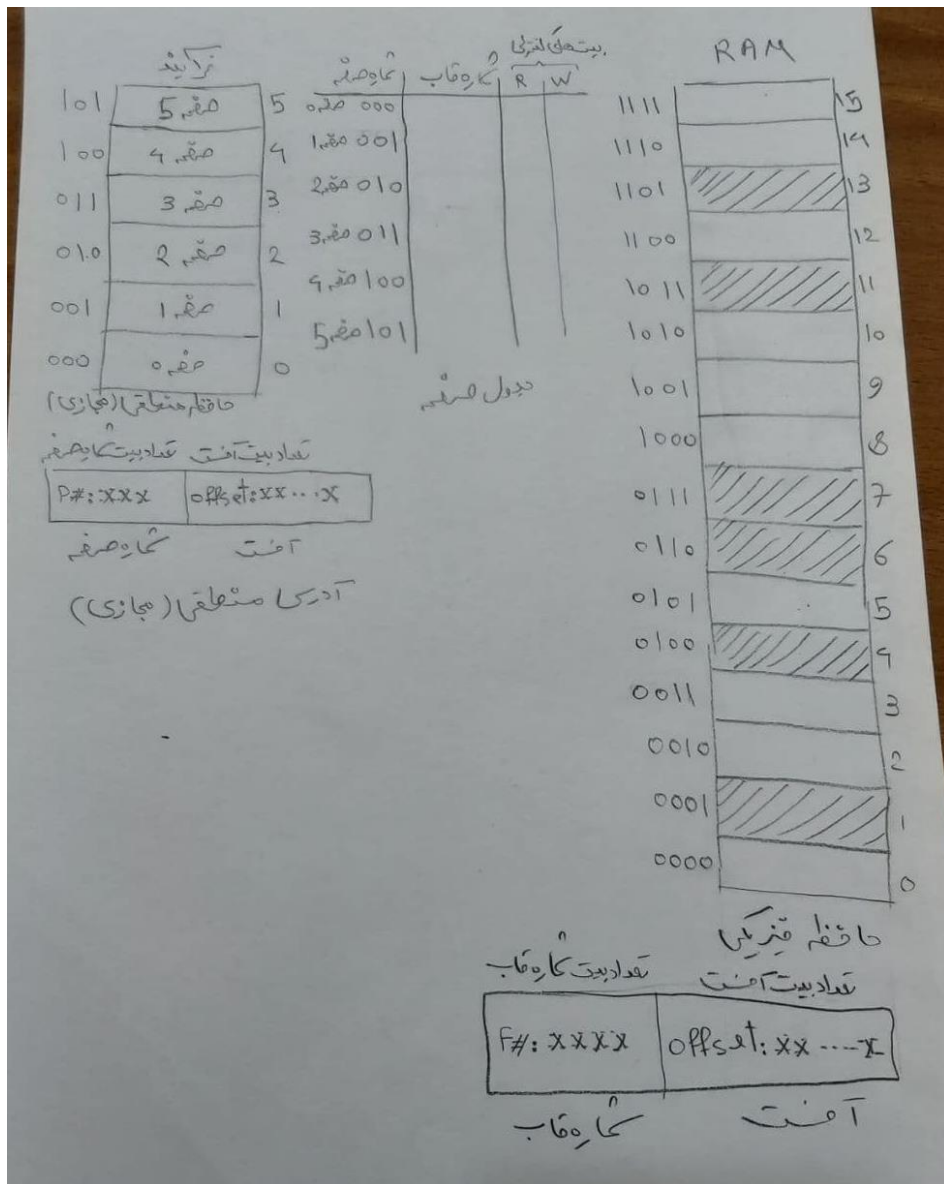 فرآیند
101 صفحه 5 5
100 صفحه 4 4
011 صفحه 3 3
010 صفحه 2 2
001 صفحه 1 1
000 صفحه 0 0
حافظه منطقی (مجازی)
تعداد بیت شماره صفحه تعداد بیت آفست
P#: xxx offset: xx...x
شماره صفحه آفست
آدرس منطقی (مجازی)
بیت های کنترلی
شماره صفحه شماره قاب R W
صفحه 0 000
صفحه 1 001
صفحه 2 010
صفحه 3 011
صفحه 4 100
صفحه 5 101
جدول صفحه
RAM
1111 15
1110 14
1101 13
1100 12
1011 11
1010 10
1001 9
1000 8
0111 7
0110 6
0101 5
0100 4
0011 3
0010 2
0001 1
0000 0
حافظه فیزیکی
تعداد بیت شماره قاب تعداد بیت آفست
F#: xxxx offset: xx....x
شماره قاب آفست